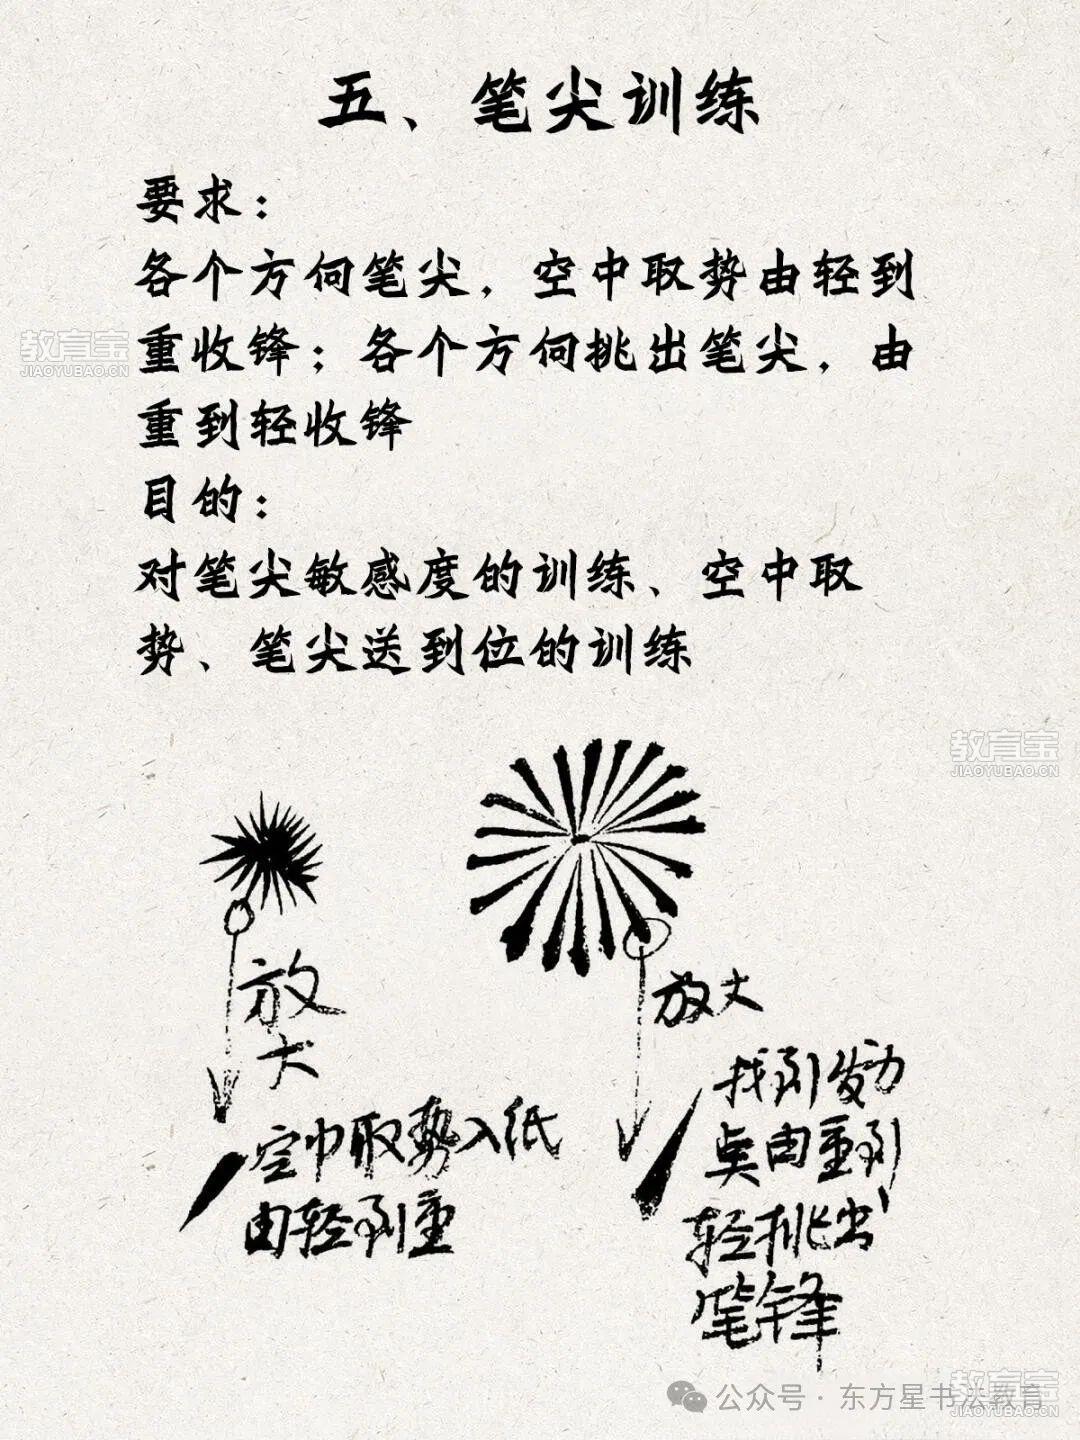 五、笔尖训练
要求：
各个方向笔尖，空中取势由轻到
重收锋；各个方向挑出笔尖，由
重到轻收锋
目的：
对笔尖敏感度的训练、空中取
势、笔尖送到位的训练
教育宝
JIAOYUBAO.CN
教育宝
JIAOYUBAO.CN
放
大
空中取势入纸
由轻到重
放大
找到发力
点由重到
轻挑出
笔锋
公众号·东方星书法教育
教育宝
JIAOYUBAO.CN